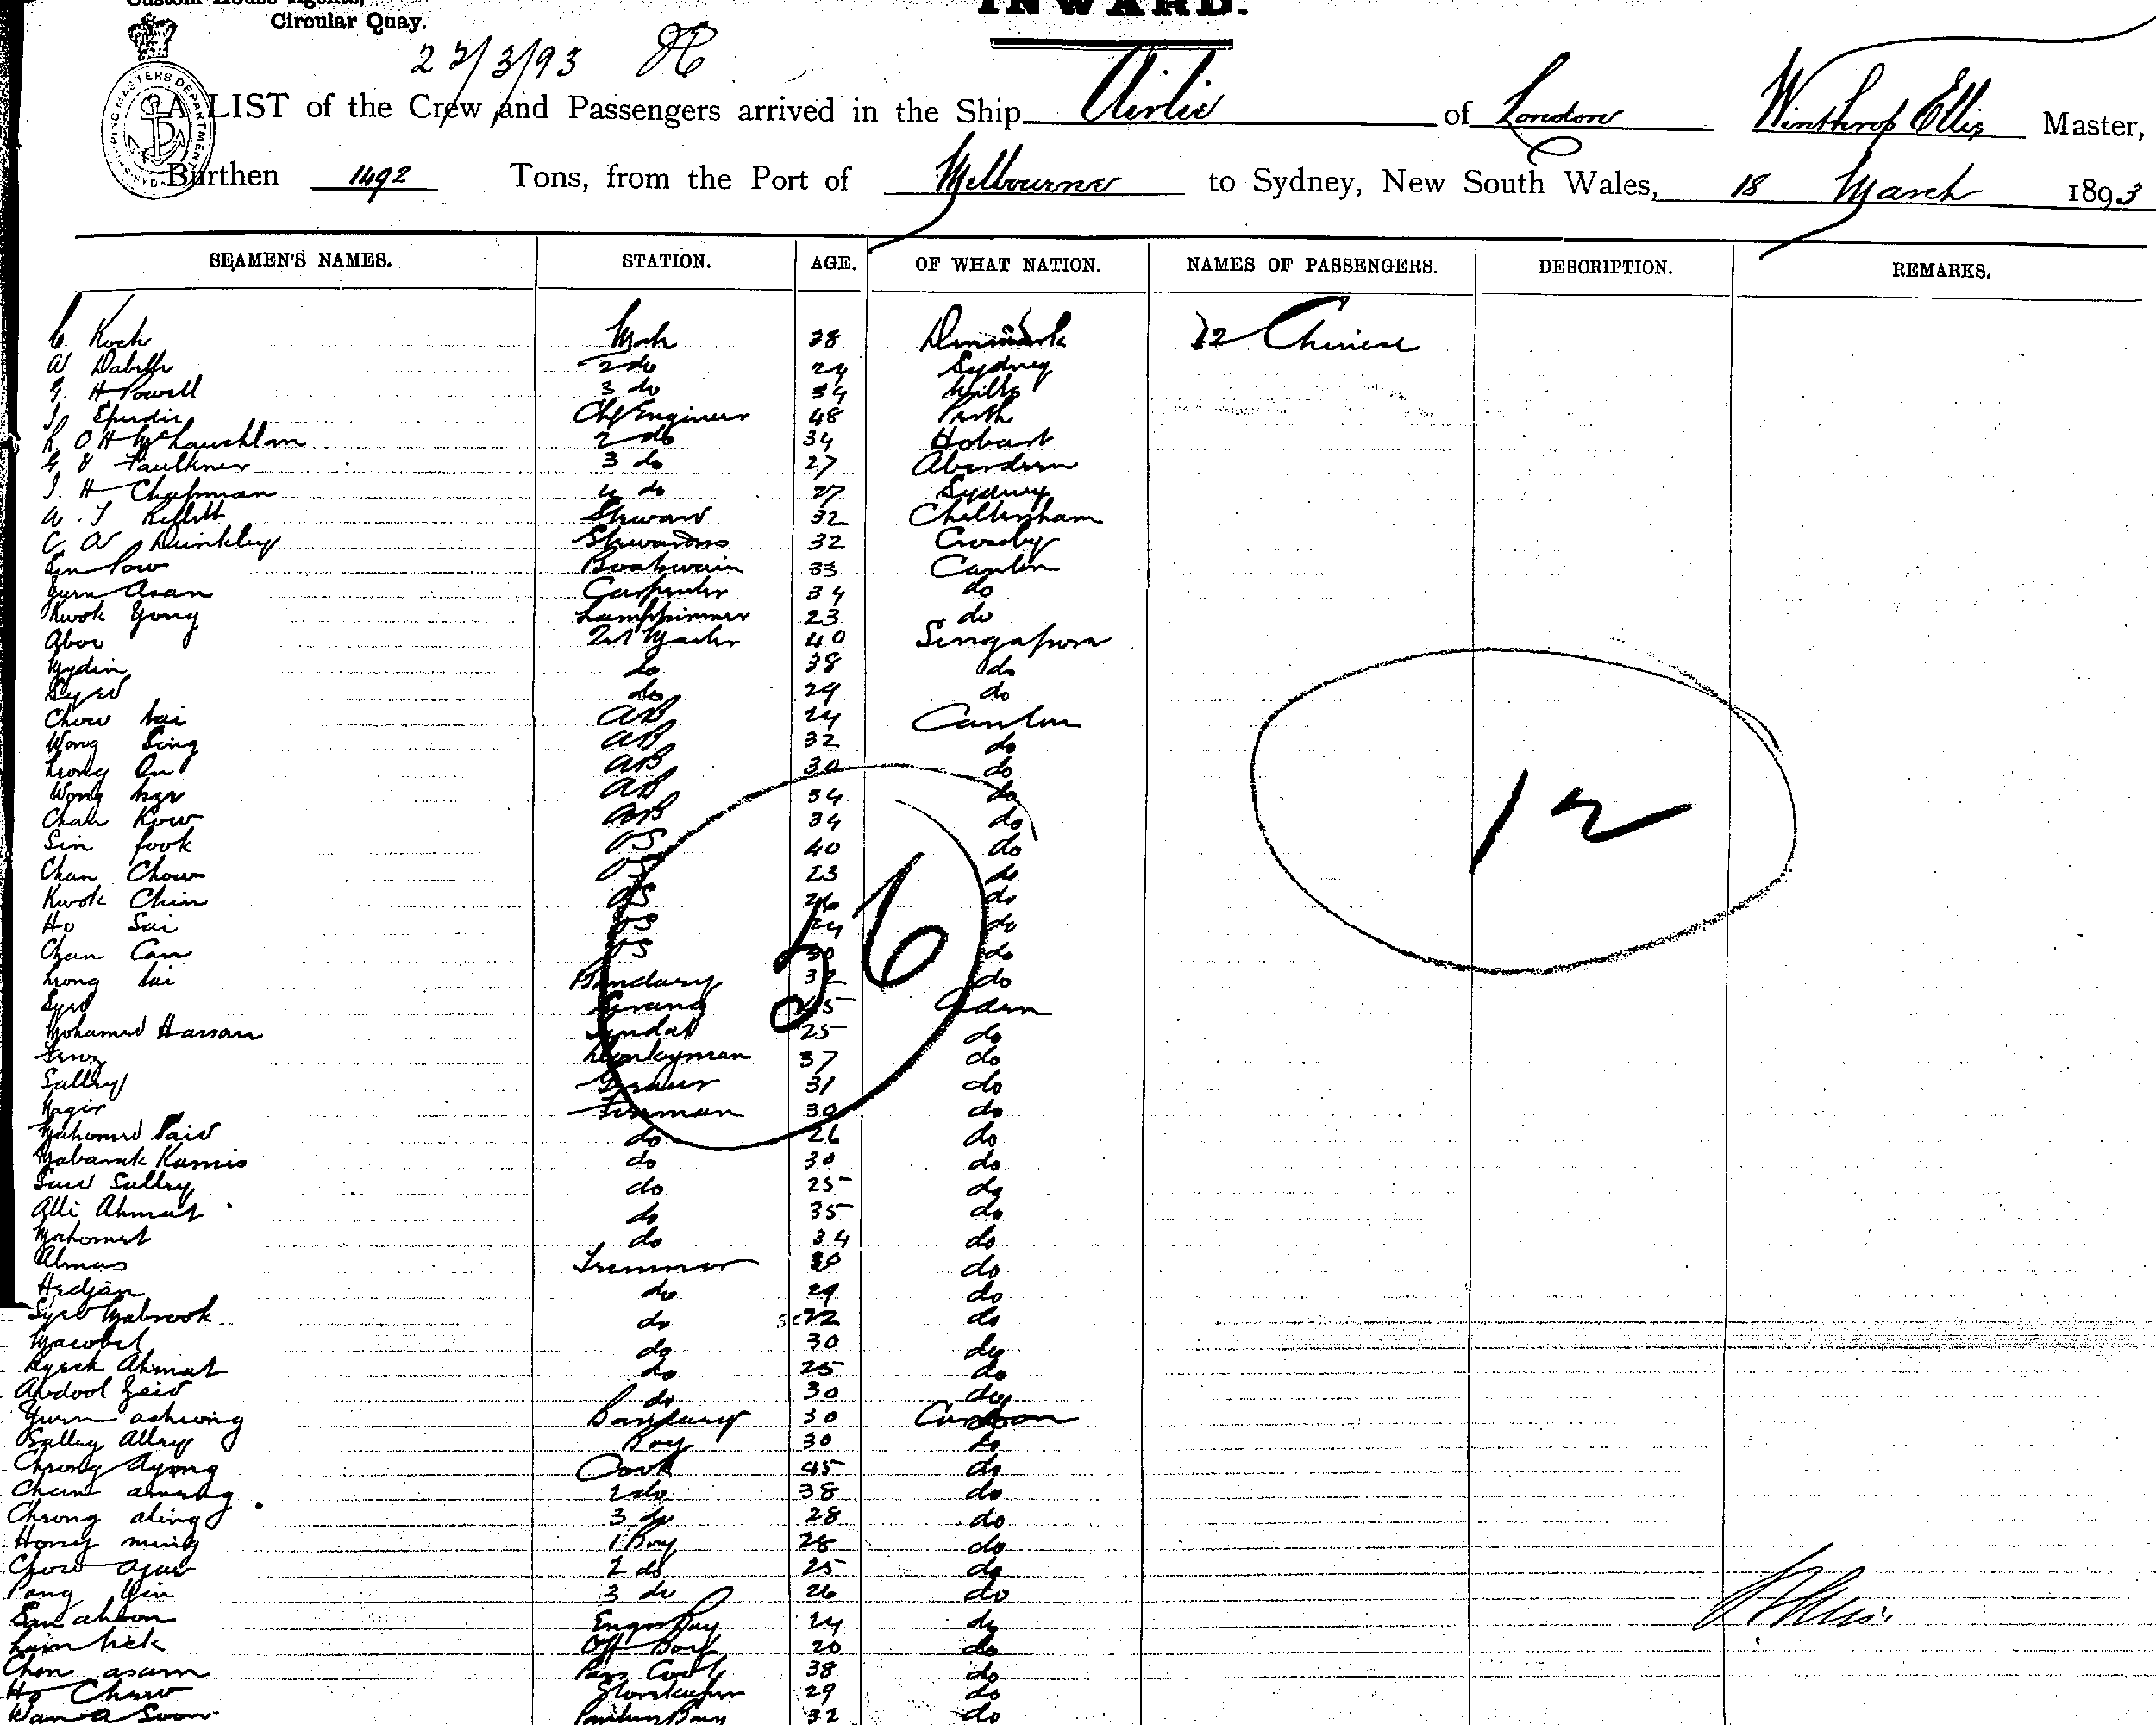 Circular Quay.
INWARD.
23/3/93
A LIST of the Crew and Passengers arrived in the Ship Airlie of London Winthrop Ellis Master,
Burthen 1492 Tons, from the Port of Melbourne to Sydney, New South Wales, 18 March 1893
SEAMEN'S NAMES. STATION. AGE. OF WHAT NATION. NAMES OF PASSENGERS. DESCRIPTION. REMARKS.
C. Koch Mate 28 Denmark 12 Chinese
2 do 24 Sydney
G. H Powell 3 do 34 Wilts
Chf Engineer 48 Perth
R O H McLauchlan 2 do 34 Hobart
G V Faulkner 3 do 27 Aberdeen
J. H Chapman 4 do 27 Sydney
A. J Steward 32 Cheltenham
C W Dunkley Stewardess 32 Crosby
Boatswain 33 Canton
Asan Carpenter 34 do
Kwok Yong Lamptrimmer 23 do
Aboo Qrt Master 40 Singapore
Mydin do 38 do
Syed do 29 do
Chow AB 24 Canton
Wong Sing AB 32 do
Leong On AB 30 do
Wong AB 34 do
Chan Kow AB 34 do
Sin fook OS 40 do
Chan Chow OS 23 do
Kwok Chin OS 26 do
Ho Sai OS 24 do
Chan Can OS do
Leong Bandary 32 do
Syed Serang 45 Aden
Mohamed Hassan Tyndal 25 do
Donkeyman 37 do
Salley Greaser 31 do
Nagir Fireman 30 do
Mahomed Said do 26 do
Mabarak Kamis do 30 do
Said Salley do 25 do
Alli Ahmat do 35 do
Mahomet do 34 do
Almas Trimmer 30 do
Hedjan do 29 do
Syed Mabrook do 22 do
do 30 do
Ahmat do 25 do
Abdool Zaid do 30 do
Yurn Bandary 30 Canton
Salley Alley Boy 30 do
Cheong Ayong Cook 45 do
2 do 38 do
Cheong aling 3 do 28 do
Hong ming 1 Boy 28 do
Chow 2 do 25 do
Pang Yin 3 do 26 do
Engrs Boy 24 do
Off Boy 20 do
Chen asam Pass Cook 38 do
Ho Chew Storekeeper 29 do
Wan a Soon 32 do
56
12